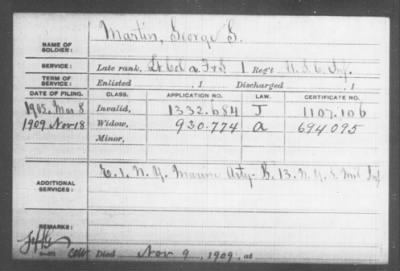 Martin, George S.
NAME OF SOLDIER:
SERVICE: Late rank, Lt Col & F&S 1 Reg't U.S.C. Inf.
TERM OF SERVICE: Enlisted 1 Discharged , 1
DATE OF FILING. CLASS. APPLICATION NO. LAW. CERTIFICATE NO.
1905, Mar 8 Invalid, 1332.684 J 1107.106
1909 Nov 18 Widow, 930.774 a 694095
Minor,
ADDITIONAL SERVICES: E. 1, N.Y. Marine Arty. B. 13. N.Y.S. Mil Inf
REMARKS:
Died Nov 9, 1909, at